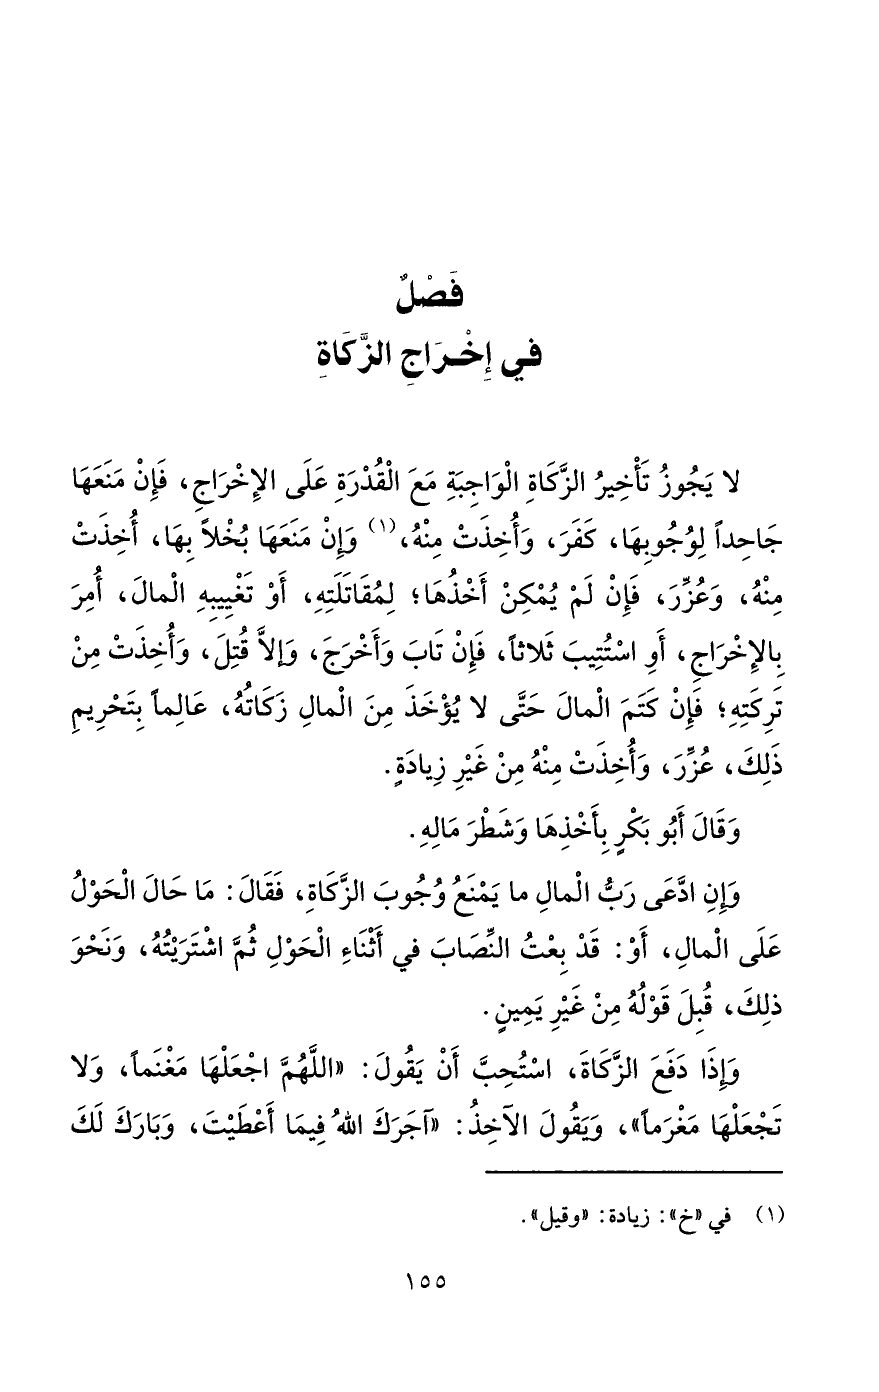 فَصْلٌ
في إِخْرَاجِ الزَّكَاةِ
لا يَجُوزُ تَأْخِيرُ الزَّكَاةِ الْوَاجِبَةِ مَعَ الْقُدْرَةِ عَلَى الإِخْرَاجِ، فَإِنْ مَنَعَهَا
جَاحِداً لِوُجُوبِهَا، كَفَرَ، وَأُخِذَتْ مِنْهُ،(١) وَإِنْ مَنَعَهَا بُخْلاً بِهَا، أُخِذَتْ
مِنْهُ، وَعُزِّرَ، فَإِنْ لَمْ يُمْكِنْ أَخْذُهَا؛ لِمُقَاتَلَتِهِ، أَوْ تَغْيِيبِهِ الْمالَ، أُمِرَ
بِالإِخْرَاجِ، أَوِ اسْتُتِيبَ ثَلاثاً، فَإِنْ تَابَ وَأَخْرَجَ، وَإِلاَّ قُتِلَ، وَأُخِذَتْ مِنْ
تَرِكَتِهِ؛ فَإِنْ كَتَمَ الْمالَ حَتَّى لا يُؤْخَذَ مِنَ الْمالِ زَكَاتُهُ، عَالِماً بِتَحْرِيمِ
ذَلِكَ، عُزِّرَ، وَأُخِذَتْ مِنْهُ مِنْ غَيْرِ زِيادَةٍ.
وَقَالَ أَبُو بَكْرٍ بِأَخْذِهَا وَشَطْرَ مَالِهِ.
وَإِنِ ادَّعَى رَبُّ الْمالِ ما يَمْنَعُ وُجُوبَ الزَّكَاةِ، فَقَالَ: مَا حَالَ الْحَوْلُ
عَلَى الْمالِ، أَوْ: قَدْ بِعْتُ النِّصَابَ في أَثْنَاءِ الْحَوْلِ ثُمَّ اشْتَرَيْتُهُ، وَنَحْوَ
ذلِكَ، قُبِلَ قَوْلُهُ مِنْ غَيْرِ يَمِينٍ.
وَإِذَا دَفَعَ الزَّكَاةَ، اسْتُحِبَّ أَنْ يَقُولَ: «اللَّهُمَّ اجْعَلْهَا مَغْنَماً، وَلا
تَجْعَلْهَا مَغْرَماً»، وَيَقُولَ الآخِذُ: «آجَرَكَ اللهُ فِيمَا أَعْطَيْتَ، وَبَارَكَ لَكَ
(١) في «خ»: زيادة: «وقيل».
١٥٥